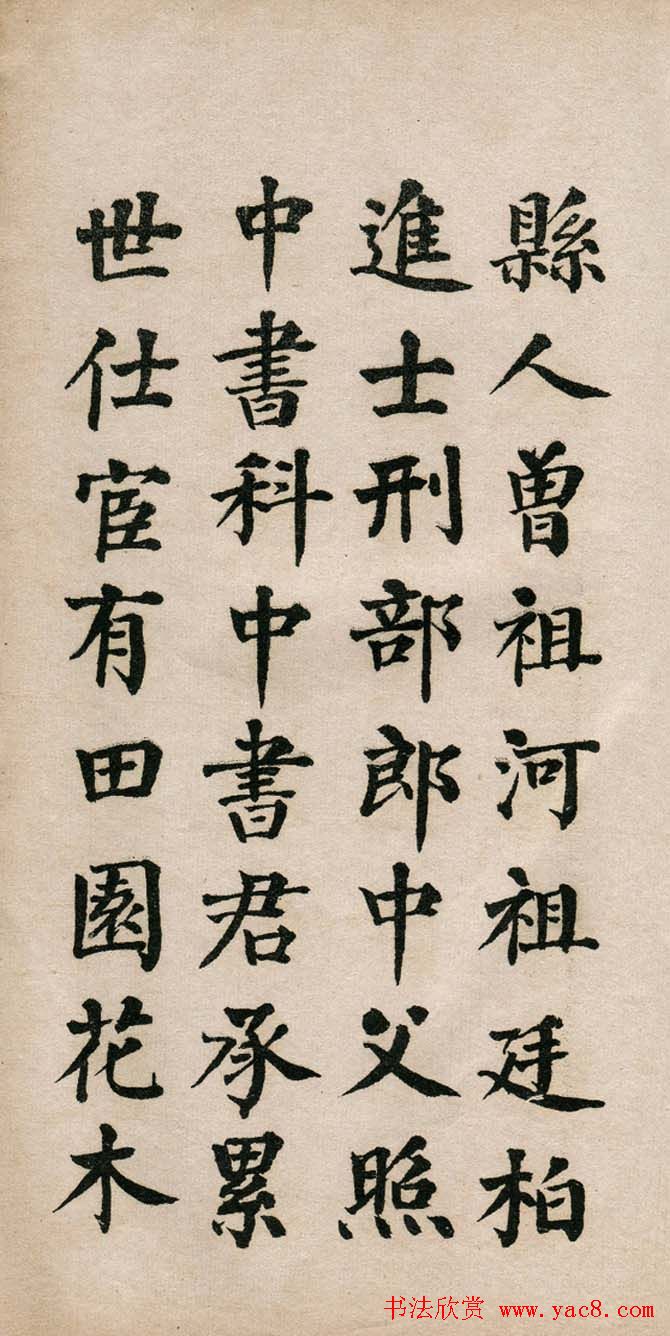 縣人曾祖河祖廷柏
進士刑部郎中父照
中書科中書君承累
世仕宦有田園花木
书法欣赏 www.yac8.com